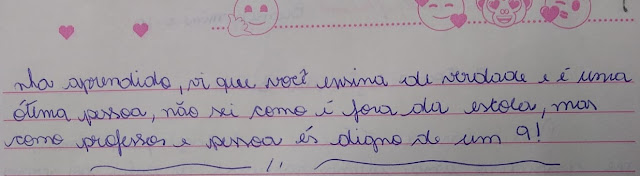 ha aprendido, vi que você ensina de verdade e é uma
ótima pessoa, não sei como é fora da escola, mas
como professor e pessoa és digno de um 9!